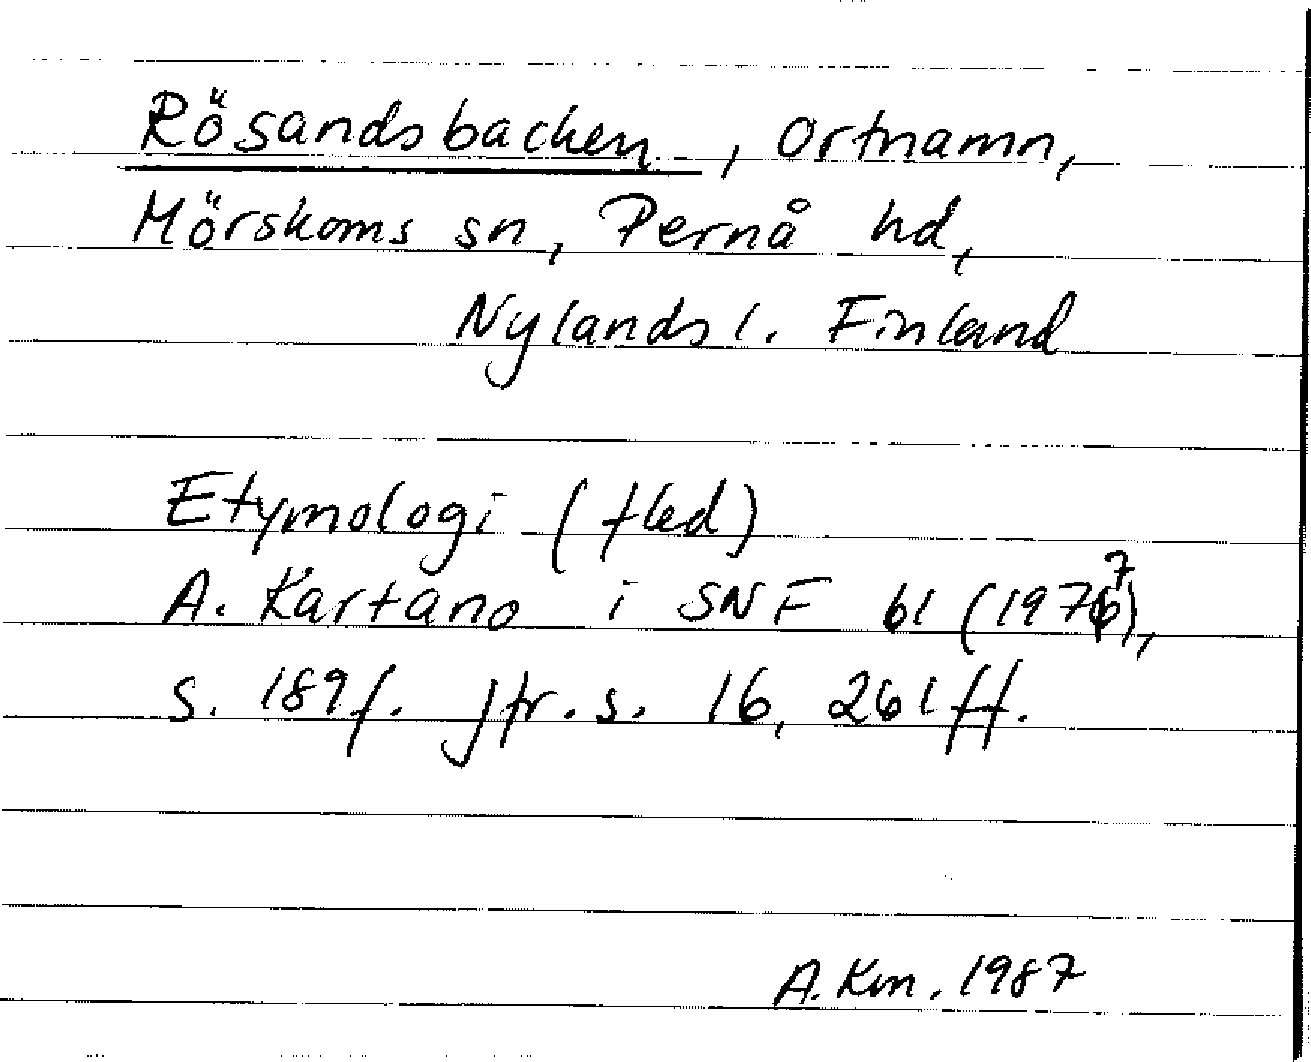 Rösandsbacken, ortnamn,
Mörskoms sn, Pernå hd,
Nylands l. Finland
Etymologi (fled)
A. Kartano i SNF 61 (1977),
s. 189f. Jfr. s. 16, 261ff.
A. Km. 1987